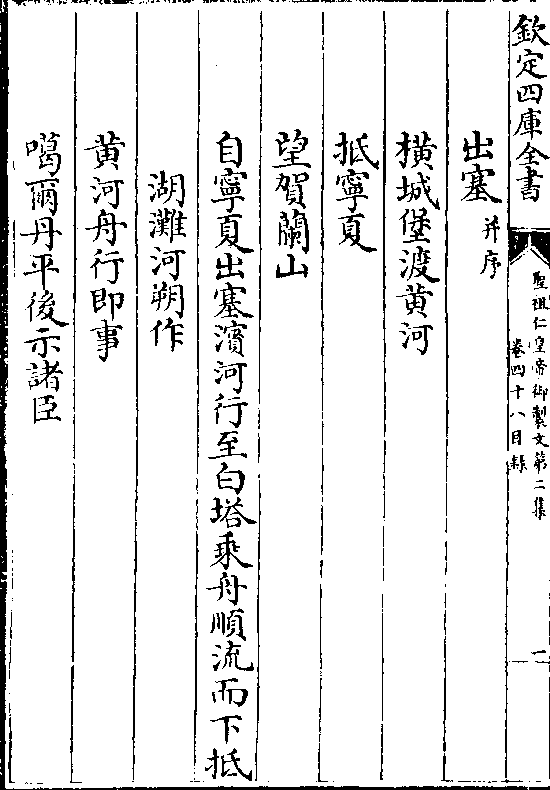 欽定四庫全書
聖祖仁皇帝御製文第二集
卷四十八目録
一
出塞并序
橫城堡渡黄河
抵寧夏
望賀蘭山
自寧夏出塞濱河行至白塔乘舟順流而下抵
湖灘河朔作
黄河舟行即事
噶爾丹平後示諸臣